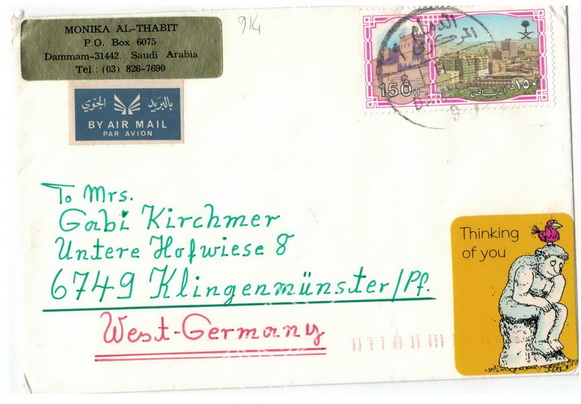 MONIKA AL-THABIT
P.O. Box 6075
Dammam-31442. Saudi Arabia
Tel.: (03) 826-7690
914
بالبريد الجوي
BY AIR MAIL
PAR AVION
150
١٥٠
To Mrs.
Gabi Kirchmer
Untere Hofwiese 8
6749 Klingenmünster/Pf.
West-Germany
Thinking
of you